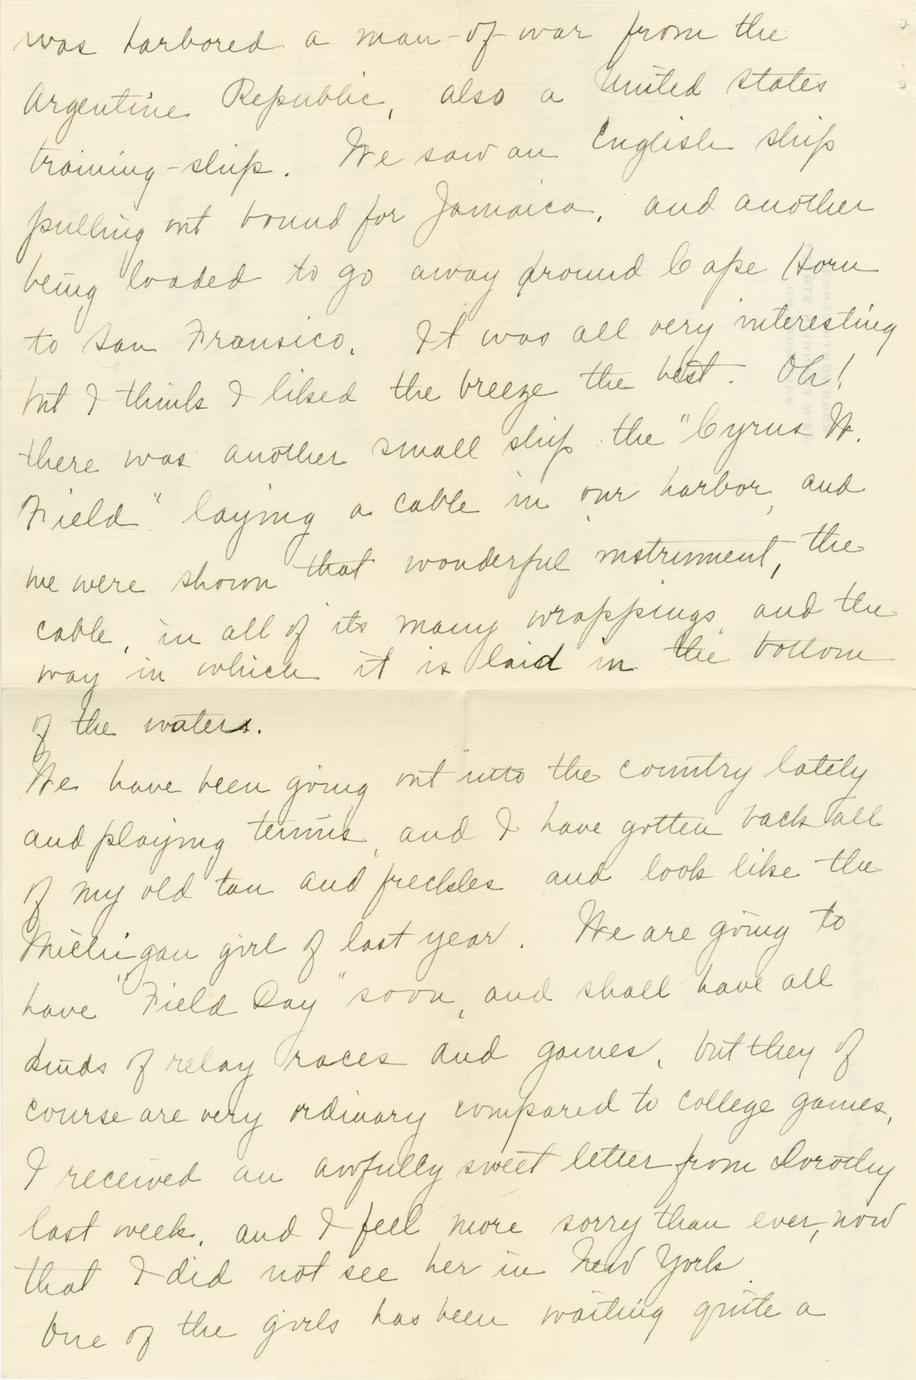 was harbored a man-of-war from the
Argentine Republic, also a United States
training-ship. We saw an English ship
pulling out bound for Jamaica, and another
being loaded to go away around Cape Horn
to San Fransico. It was all very interesting
but I think I liked the breeze the best. Oh!
there was another small ship the "Cyrus W.
Field" laying a cable in our harbor, and
we were shown that wonderful instrument, the
cable, in all of its many wrappings, and the
way in which it is laid in the bottom
of the waters.
We have been going out into the country lately
and playing tennis, and I have gotten back all
of my old tan and freckles and look like the
Michigan girl of last year. We are going to
have "Field Day" soon, and shall have all
kinds of relay races and games, but they of
course are very ordinary compared to college games.
I received an awfully sweet letter from Dorothy
last week, and I feel more sorry than ever, now
that I did not see her in New York.
One of the girls has been waiting quite a